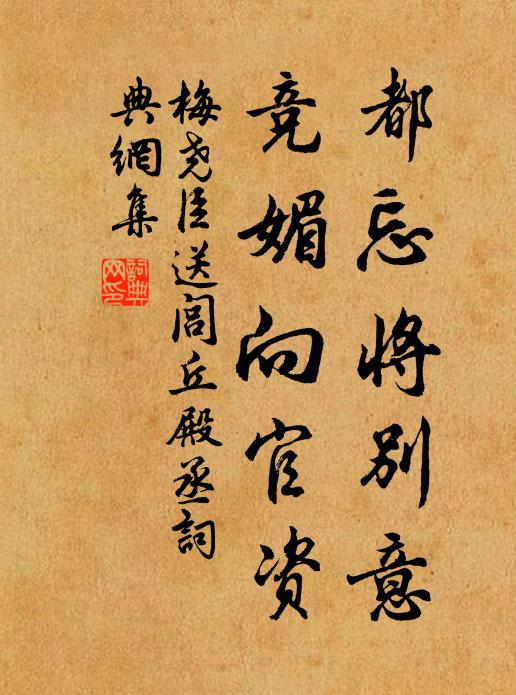 都忘将别意
竞媚向官资
梅尧臣送闾丘殿丞詞
典網集
詞典网印